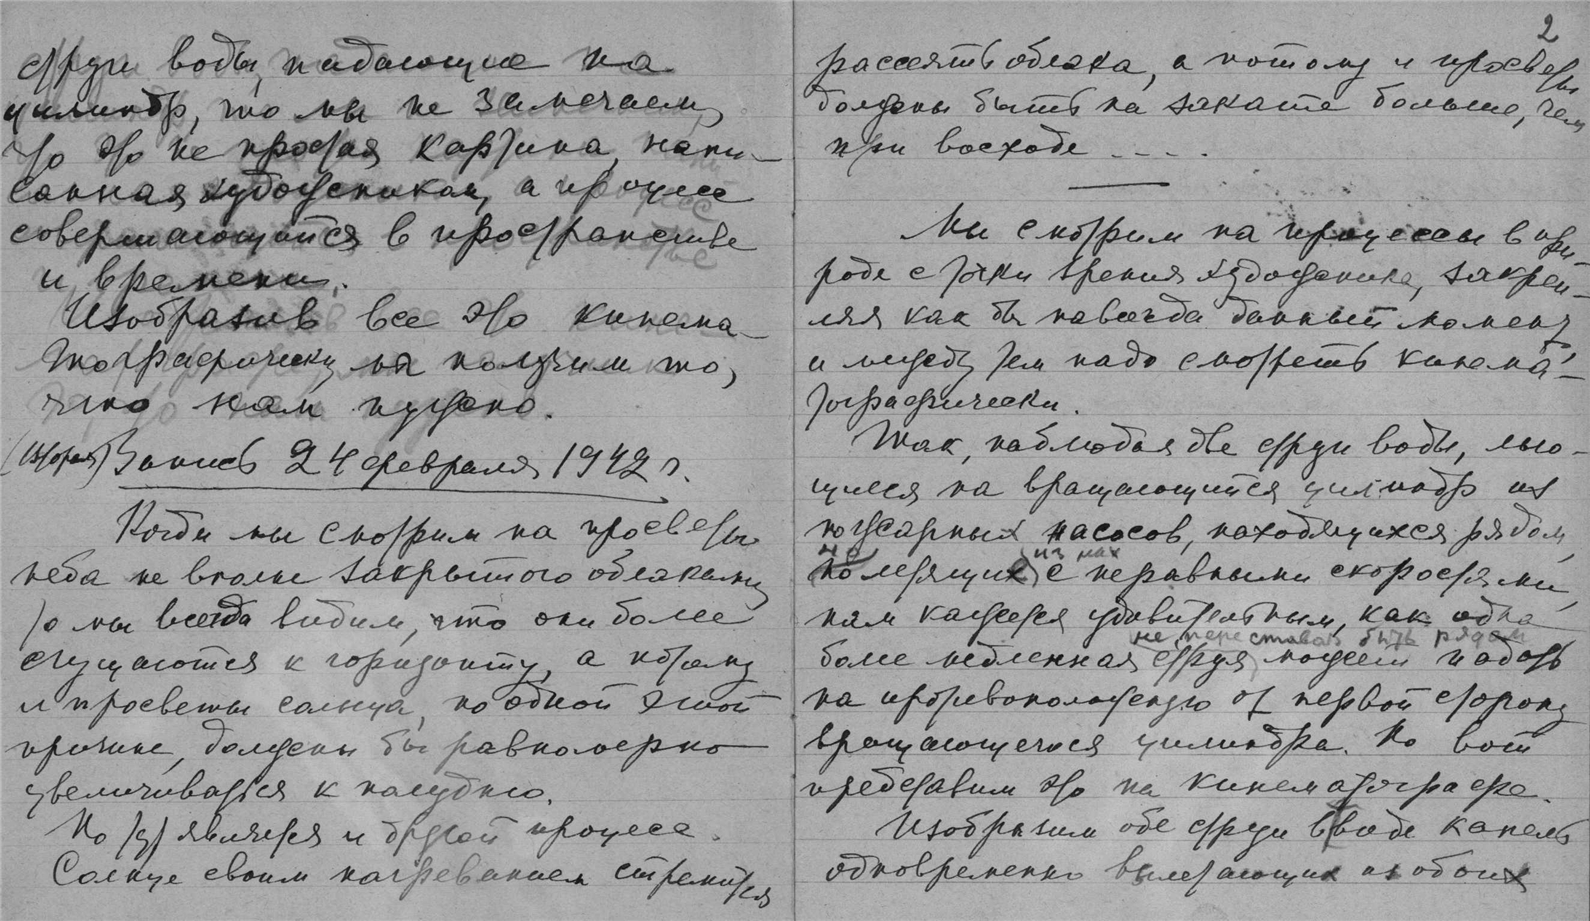 струи воды, падающие на
цилиндр, то мы не замечаем,
что это не простая картина, напи-
санная художником, а процесс
совершающийся в пространстве
и времени.
Изобразив все это кинема-
тографически, мы получим то,
что нам нужно.
(Вторая) Запись 24 февраля 1942 г.
Когда мы смотрим на просветы
неба не вполне закрытого облаками,
то мы всегда видим, что они более
сгущаются к горизонту, а потому
и просветы солнца, по одной этой
причине, должны бы равномерно
увеличиваться к полудню.
Но тут является и другой процесс.
Солнце своим нагреванием стремится
2
рассеять облака, а потому и просветы
должны быть на закате больше, чем
при восходе ....
Мы смотрим на процессы в при-
роде с точки зрения художника, закреп-
ляя как бы навсегда данный момент,
и между тем надо смотреть кинема-
тографически.
Так, наблюдая две струи воды, лью-
щиеся на вращающийся цилиндр из
пожарных насосов, находящихся рядом,
но
из них
но летящих с неравными скоростями,
нам кажется удивительным, как одна
не переставая быть рядом
более медленная струя может падать
на противоположную от первой сторону
вращающегося цилиндра. Но вот
представим это на кинематографе.
Изобразим обе струи в виде капель
одновременно вылетающих из обоих